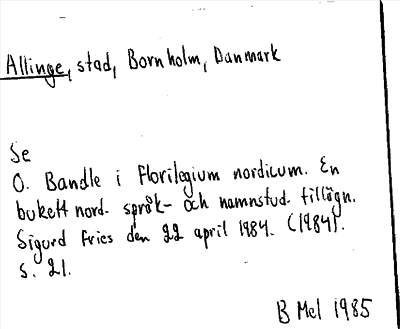 Allinge, stad, Bornholm, Danmark
Se
O. Bandle i Florilegium nordicum. En
bukett nord. språk- och namnstud. tillägn.
Sigurd Fries den 22 april 1984. (1984).
s. 21.
B Mel 1985